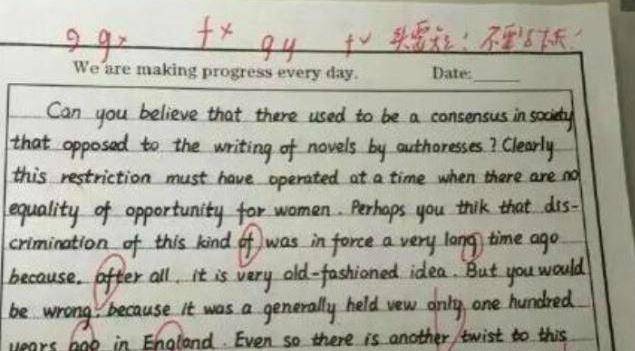 9 9x tx 9y tv 头要短! 不要
We are making progress every day. Date:
Can you believe that there used to be a consensus in society
that opposed to the writing of novels by authoresses? Clearly
this restriction must have operated at a time when there are no
equality of opportunity for women. Perhaps you thik that dis-
crimination of this kind of was in force a very long time ago
because, after all, it is very old-fashioned idea. But you would
be wrong, because it was a generally held vew only one hundred
years ago in England. Even so there is another twist to this